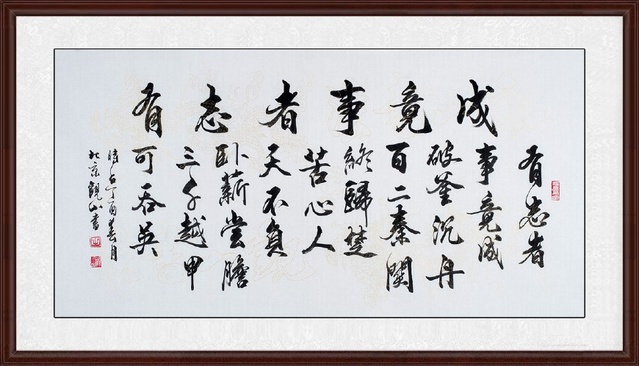 有志者事竟成
有志者
事竟成
破釜沉舟
百二秦關
終歸楚
苦心人
天不負
卧薪嘗膽
三千越甲
可吞吳
時在丁酉春月
北京觀山書